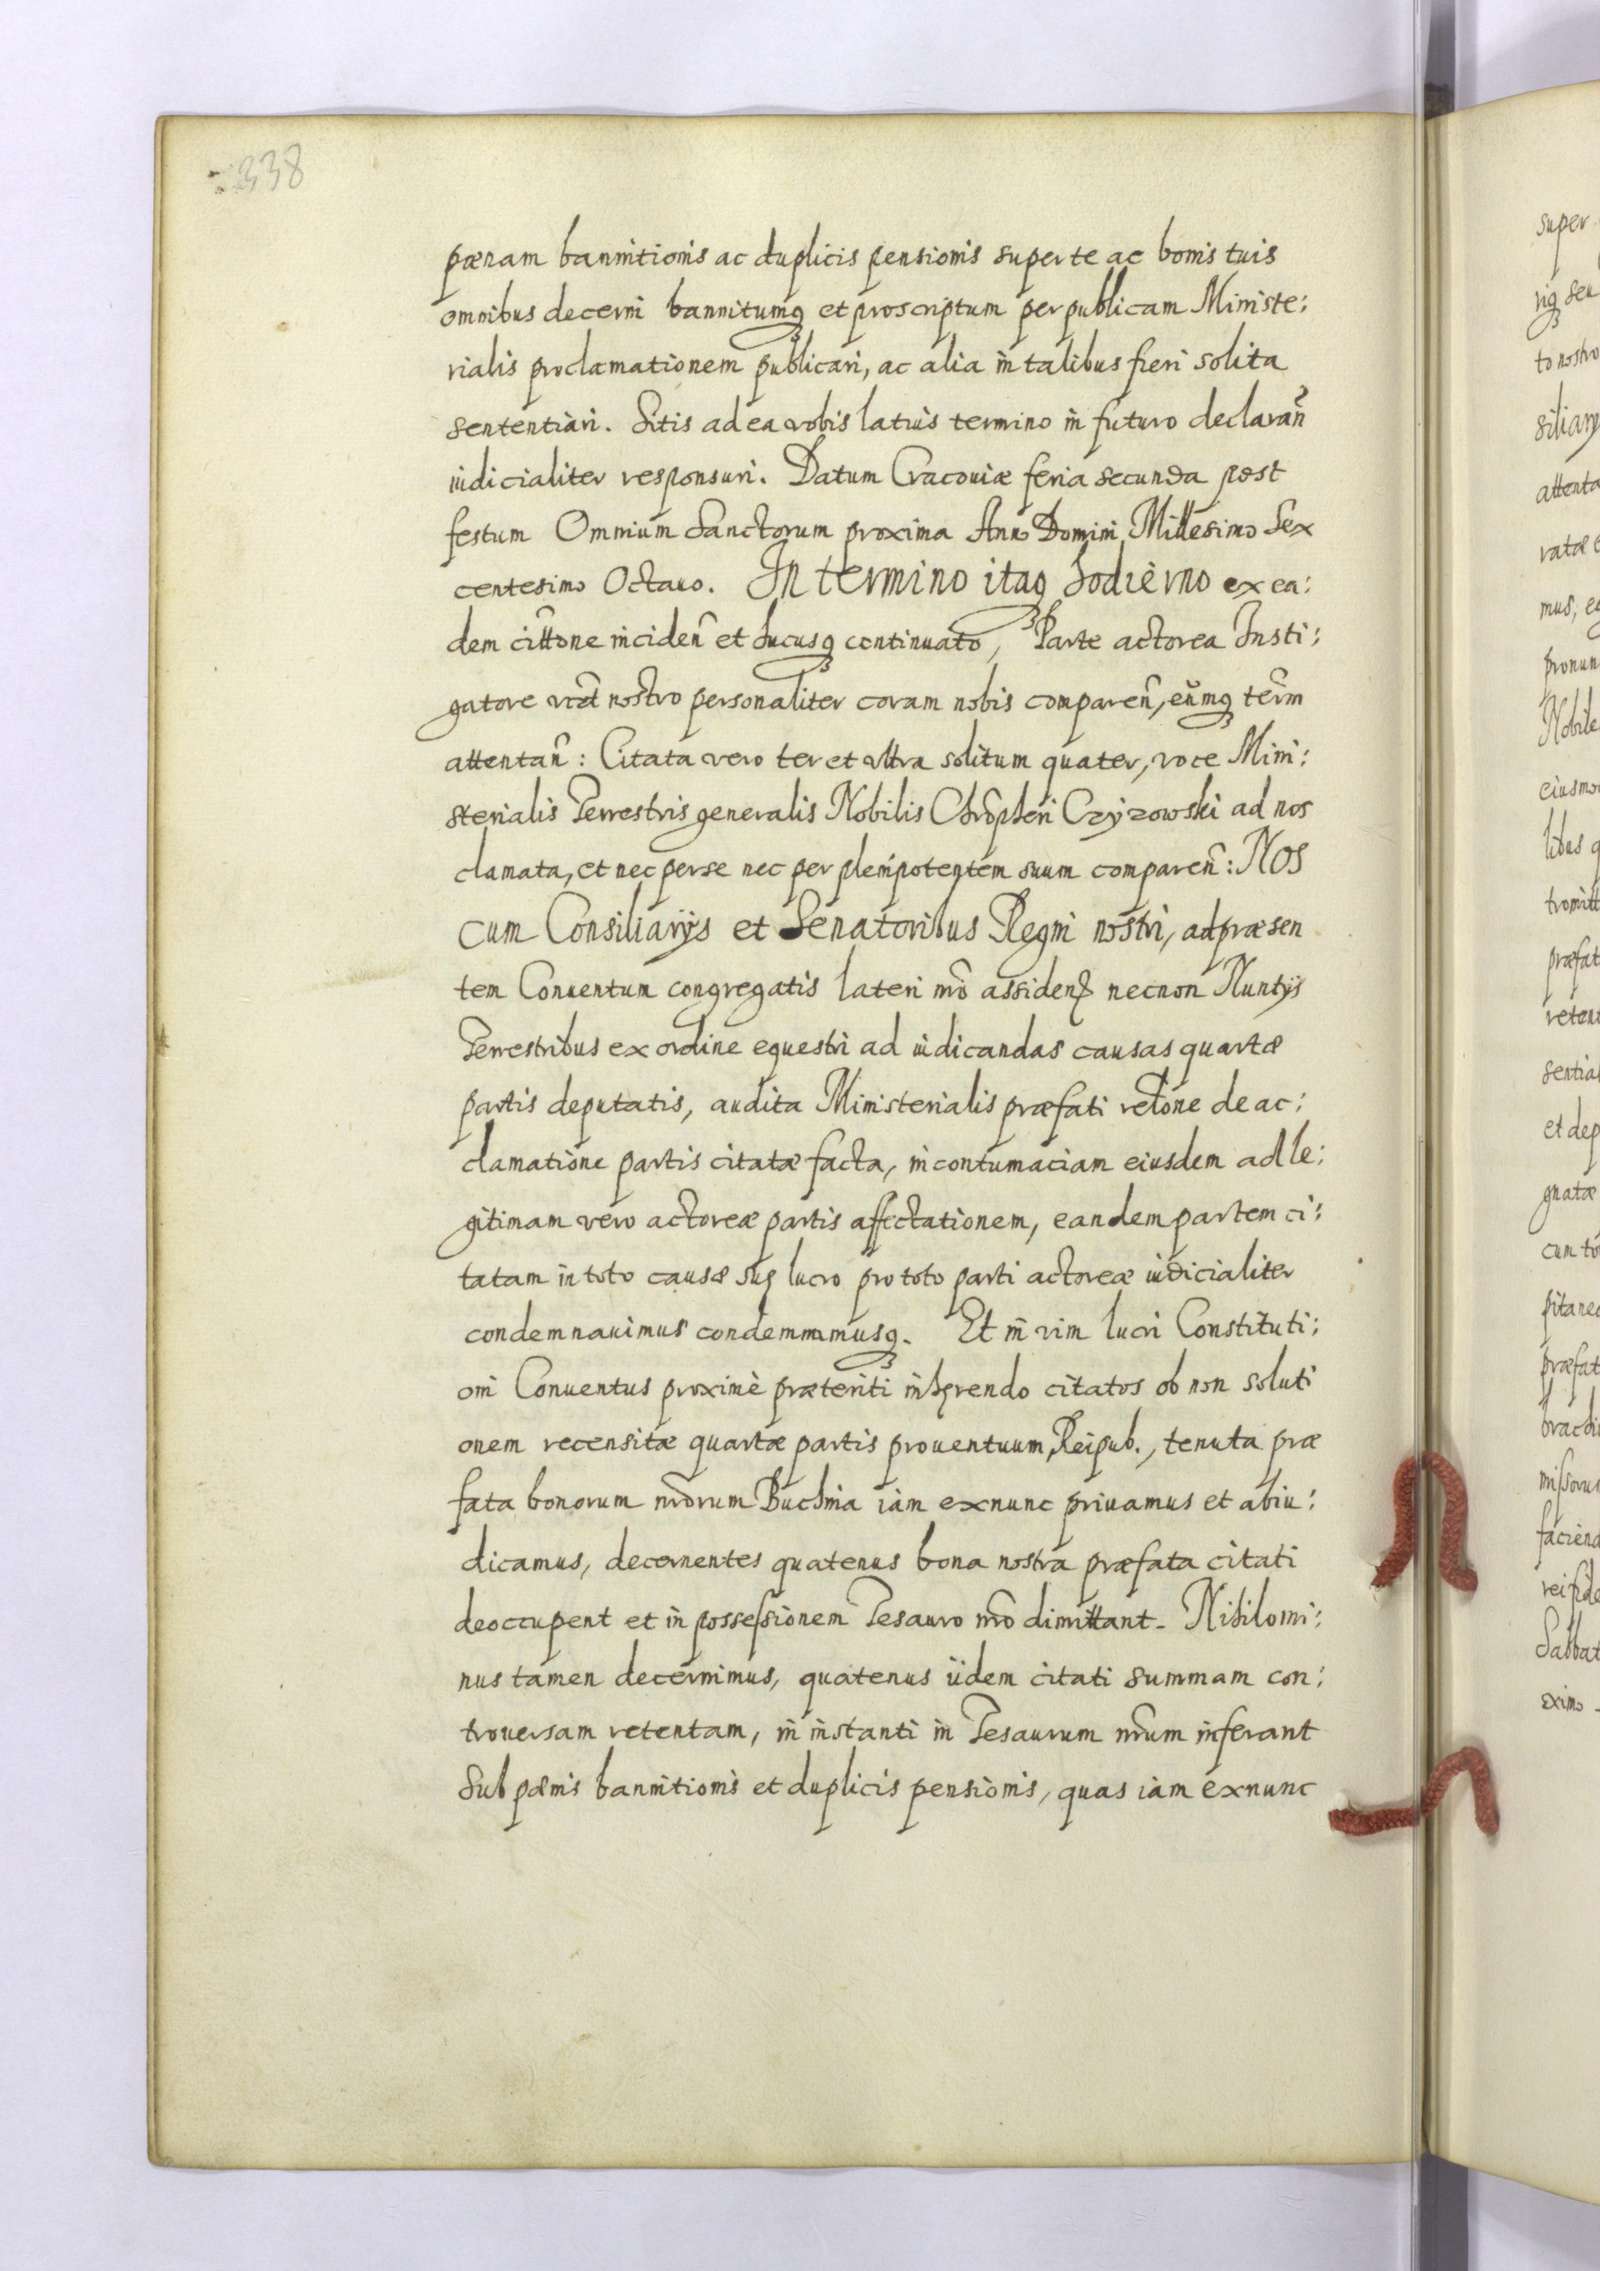 338
pænam bannitionis ac duplicis pensionis super te ac bonis tuis
omnibus decerni bannitumq₃ et proscriptum per publicam Ministe:
rialis proclamationem publicari, ac alia in talibus fieri solita
sententiari. Sitis ad ea vobis latius termino in futuro declarañ
iudicialiter responsuri. Datum Cracouiæ feria secunda post
festum Omnium Sanctorum proxima Anno Domini Millesimo Sex
centesimo Octauo. In termino itaq₃ hodierno ex ea:
dem cittone inciden̑ et hucusq₃ continuato, Parte actorea Insti:
gatore nostro personaliter coram nobis comparen̑, eũmq₃ term̃
attentan̑: Citata vero ter et vltra solitum quater, voce Mini:
sterialis Terrestris generalis Nobilis Chrõpheri Czyzowski ad nos
clamata, et nec per se nec per plenipotentem suum comparen̑: Nos
cum Consiliarijs et Senatoribus Regni nostri, ad præsen
tem Conuentum congregatis lateri nrõ assideñ necnon Nuntijs
Terrestribus ex ordine equestri ad iudicandas causas quartæ
partis deputatis, audita Ministerialis præfati reltõne de ac:
clamatione partis citatæ facta, in contumaciam eiusdem ad le:
gitimam vero actoreæ partis affectationem, eandem partem ci:
tatam in toto causæ suę lucro pro toto parti actoreæ iudicialiter
condemnauimus condemnamusq₃. Et in vim lucri Constituti:
oni Conuentus proximè præteriti inhęrendo citatos ob non soluti
onem recensitæ quartæ partis prouentuum Reipub., tenuta præ
fata bonorum nrõrum Buchnia iam exnunc priuamus et abiu:
dicamus, decernentes quatenus bona nostra præfata citati
deoccupent et in possessionem Tesauro nrõ dimittant. Nihilomi:
nus tamen decernimus, quatenus ijdem citati summam con:
trouersam retentam, in instanti in Tesaurum nrũm inferant
Sub pænis bannitionis et duplicis pensionis, quas iam exnunc
super
seu
to nostro
siliarij
attenta
ratæ
mus,
pronun
Nobile
eiusmo
libus
tromitt
præfat
retent
sentia
et dep
gnatæ
cun
pitane
præfat
brachi
missorum
faciend
Sabbat
eximo